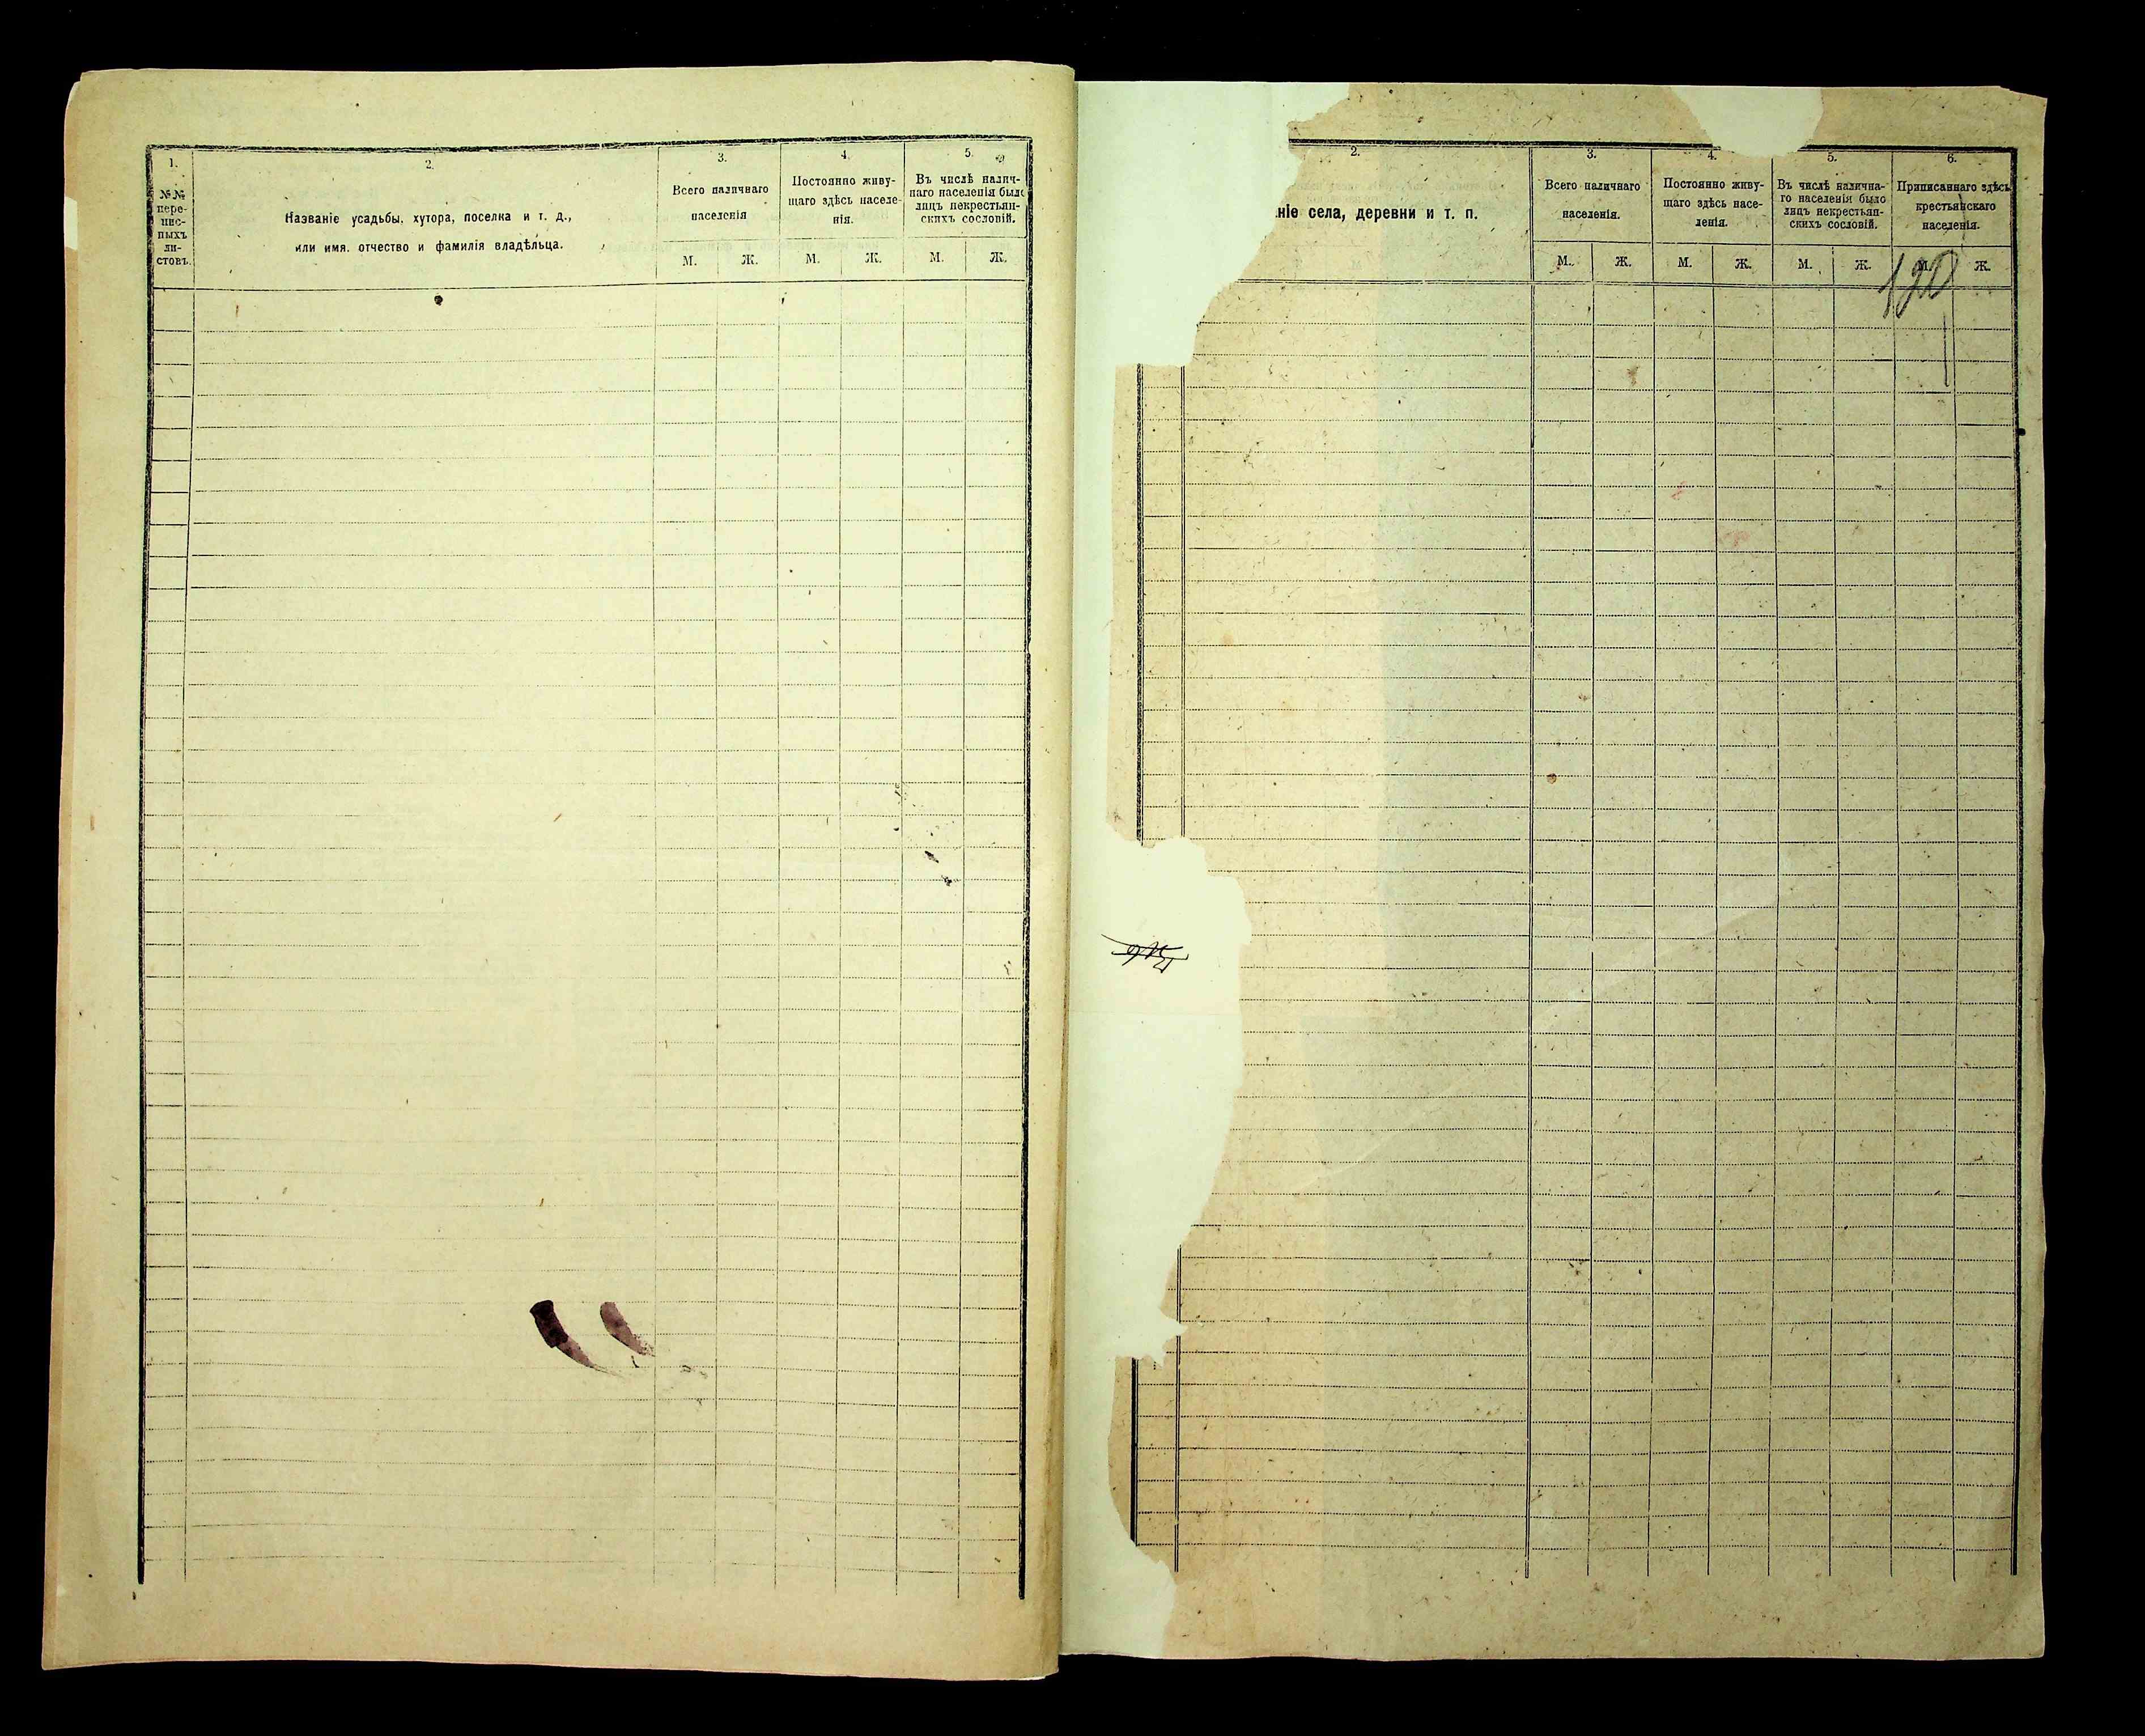 1.
№№
пере-
пис-
ныхъ
ли-
стовъ.
2.
Названіе усадьбы, хутора, поселка и т. д.,
или имя, отчество и фамилія владѣльца.
3.
Всего наличнаго
населенія
М. Ж.
4.
Постоянно живу-
щаго здѣсь населе-
нія.
М. Ж.
5.
Въ числѣ налич-
наго населенія было
лицъ некрестьян-
скихъ сословій.
М. Ж.
2.
ніе села, деревни и т. п.
3.
Всего наличнаго
населенія.
М. Ж.
4.
Постоянно живу-
щаго здѣсь насе-
ленія.
М. Ж.
5.
Въ числѣ налична-
го населенія было
лицъ некрестьян-
скихъ сословій.
М. Ж.
6.
Приписаннаго здѣсь
крестьянскаго
населенія.
М. Ж.